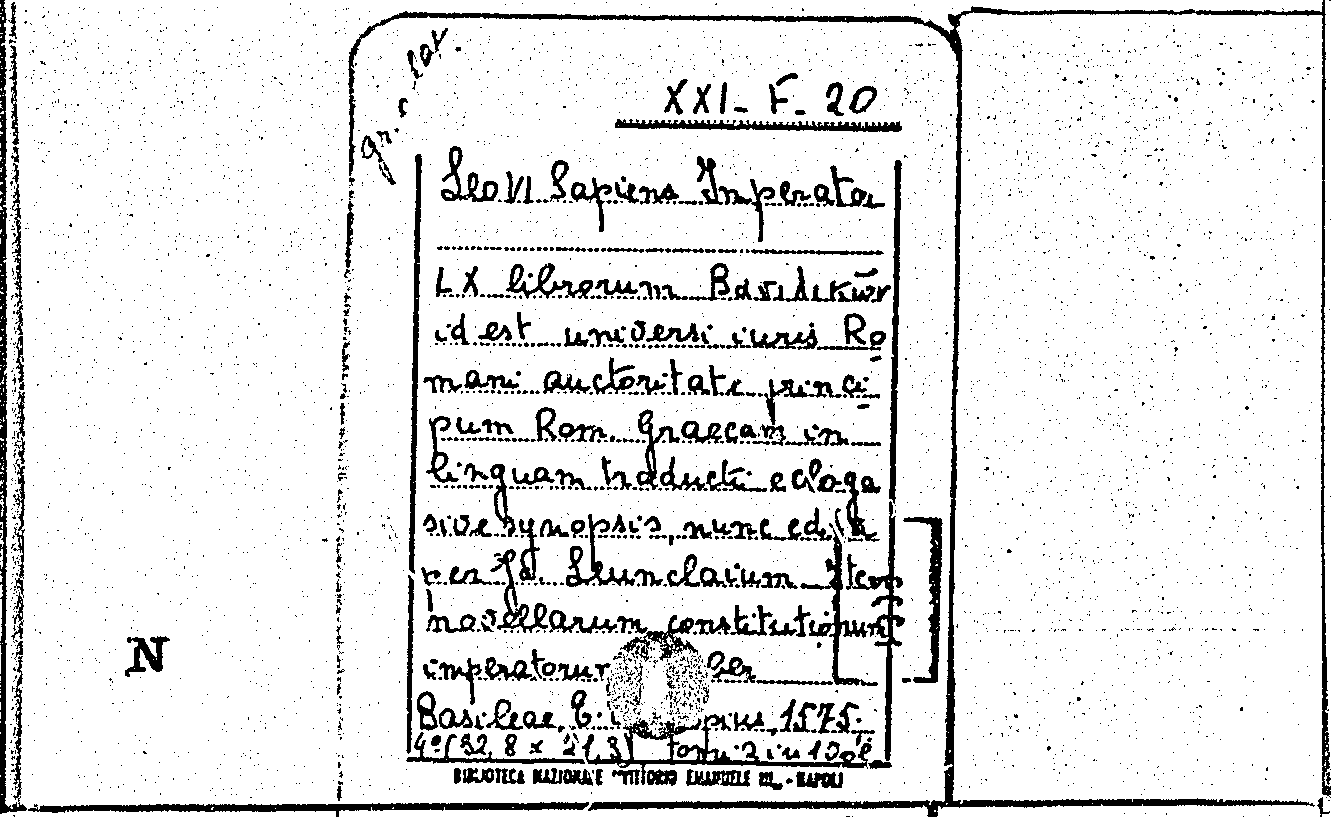 gr. e lat.
XXI - F. 20
Leo VI Sapiens Imperator
LX librorum Βασιλικῶν
id est universi iuris Ro
mani auctoritate princi
pum Rom. Graecam in
linguam traducti ecloga
sive synopsis, nunc edita
per Jo. Leunclaium Item
novellarum constitutionum
imperatorum liber
Basileae, E. 1575.
4° (32,8 x 21,3) tomi 2 in 1 vol.
BIBLIOTECA NAZIONALE "VITTORIO EMANUELE III" - NAPOLI
N